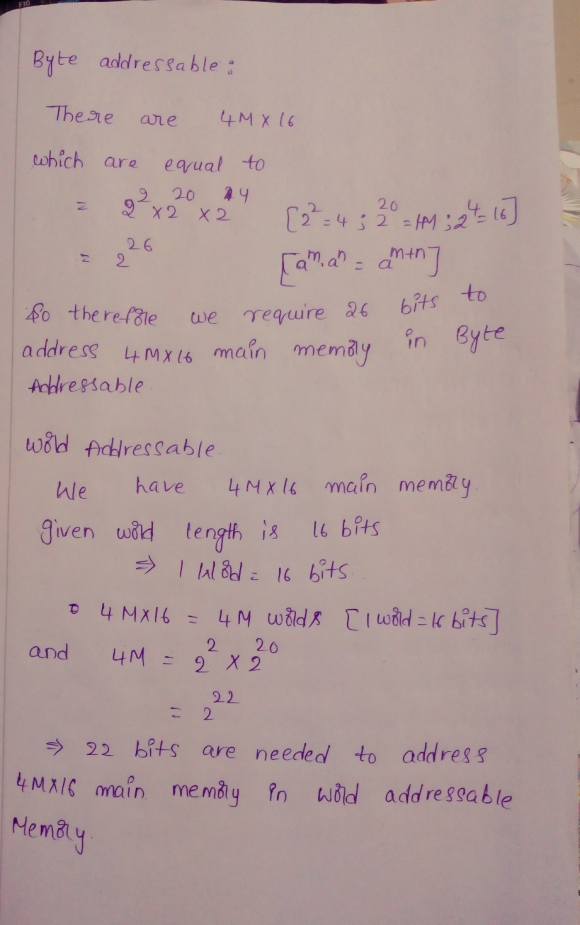 Byte addressable :
There are 4M X 16
which are equal to
= 2² x 2²⁰ x 2⁴ [2² = 4 ; 2²⁰ = 1M ; 2⁴ = 16]
= 2²⁶ [aᵐ. aⁿ = aᵐ⁺ⁿ]
So therefore we require 26 bits to
address 4MX16 main memory in Byte
Addressable
Word Addressable
We have 4MX16 main memory.
given word length is 16 bits
⇒ 1 Word = 16 bits
4MX16 = 4M words [1 word = 16 bits]
and 4M = 2² X 2²⁰
= 2²²
⇒ 22 bits are needed to address
4MX16 main memory in word addressable
Memory.